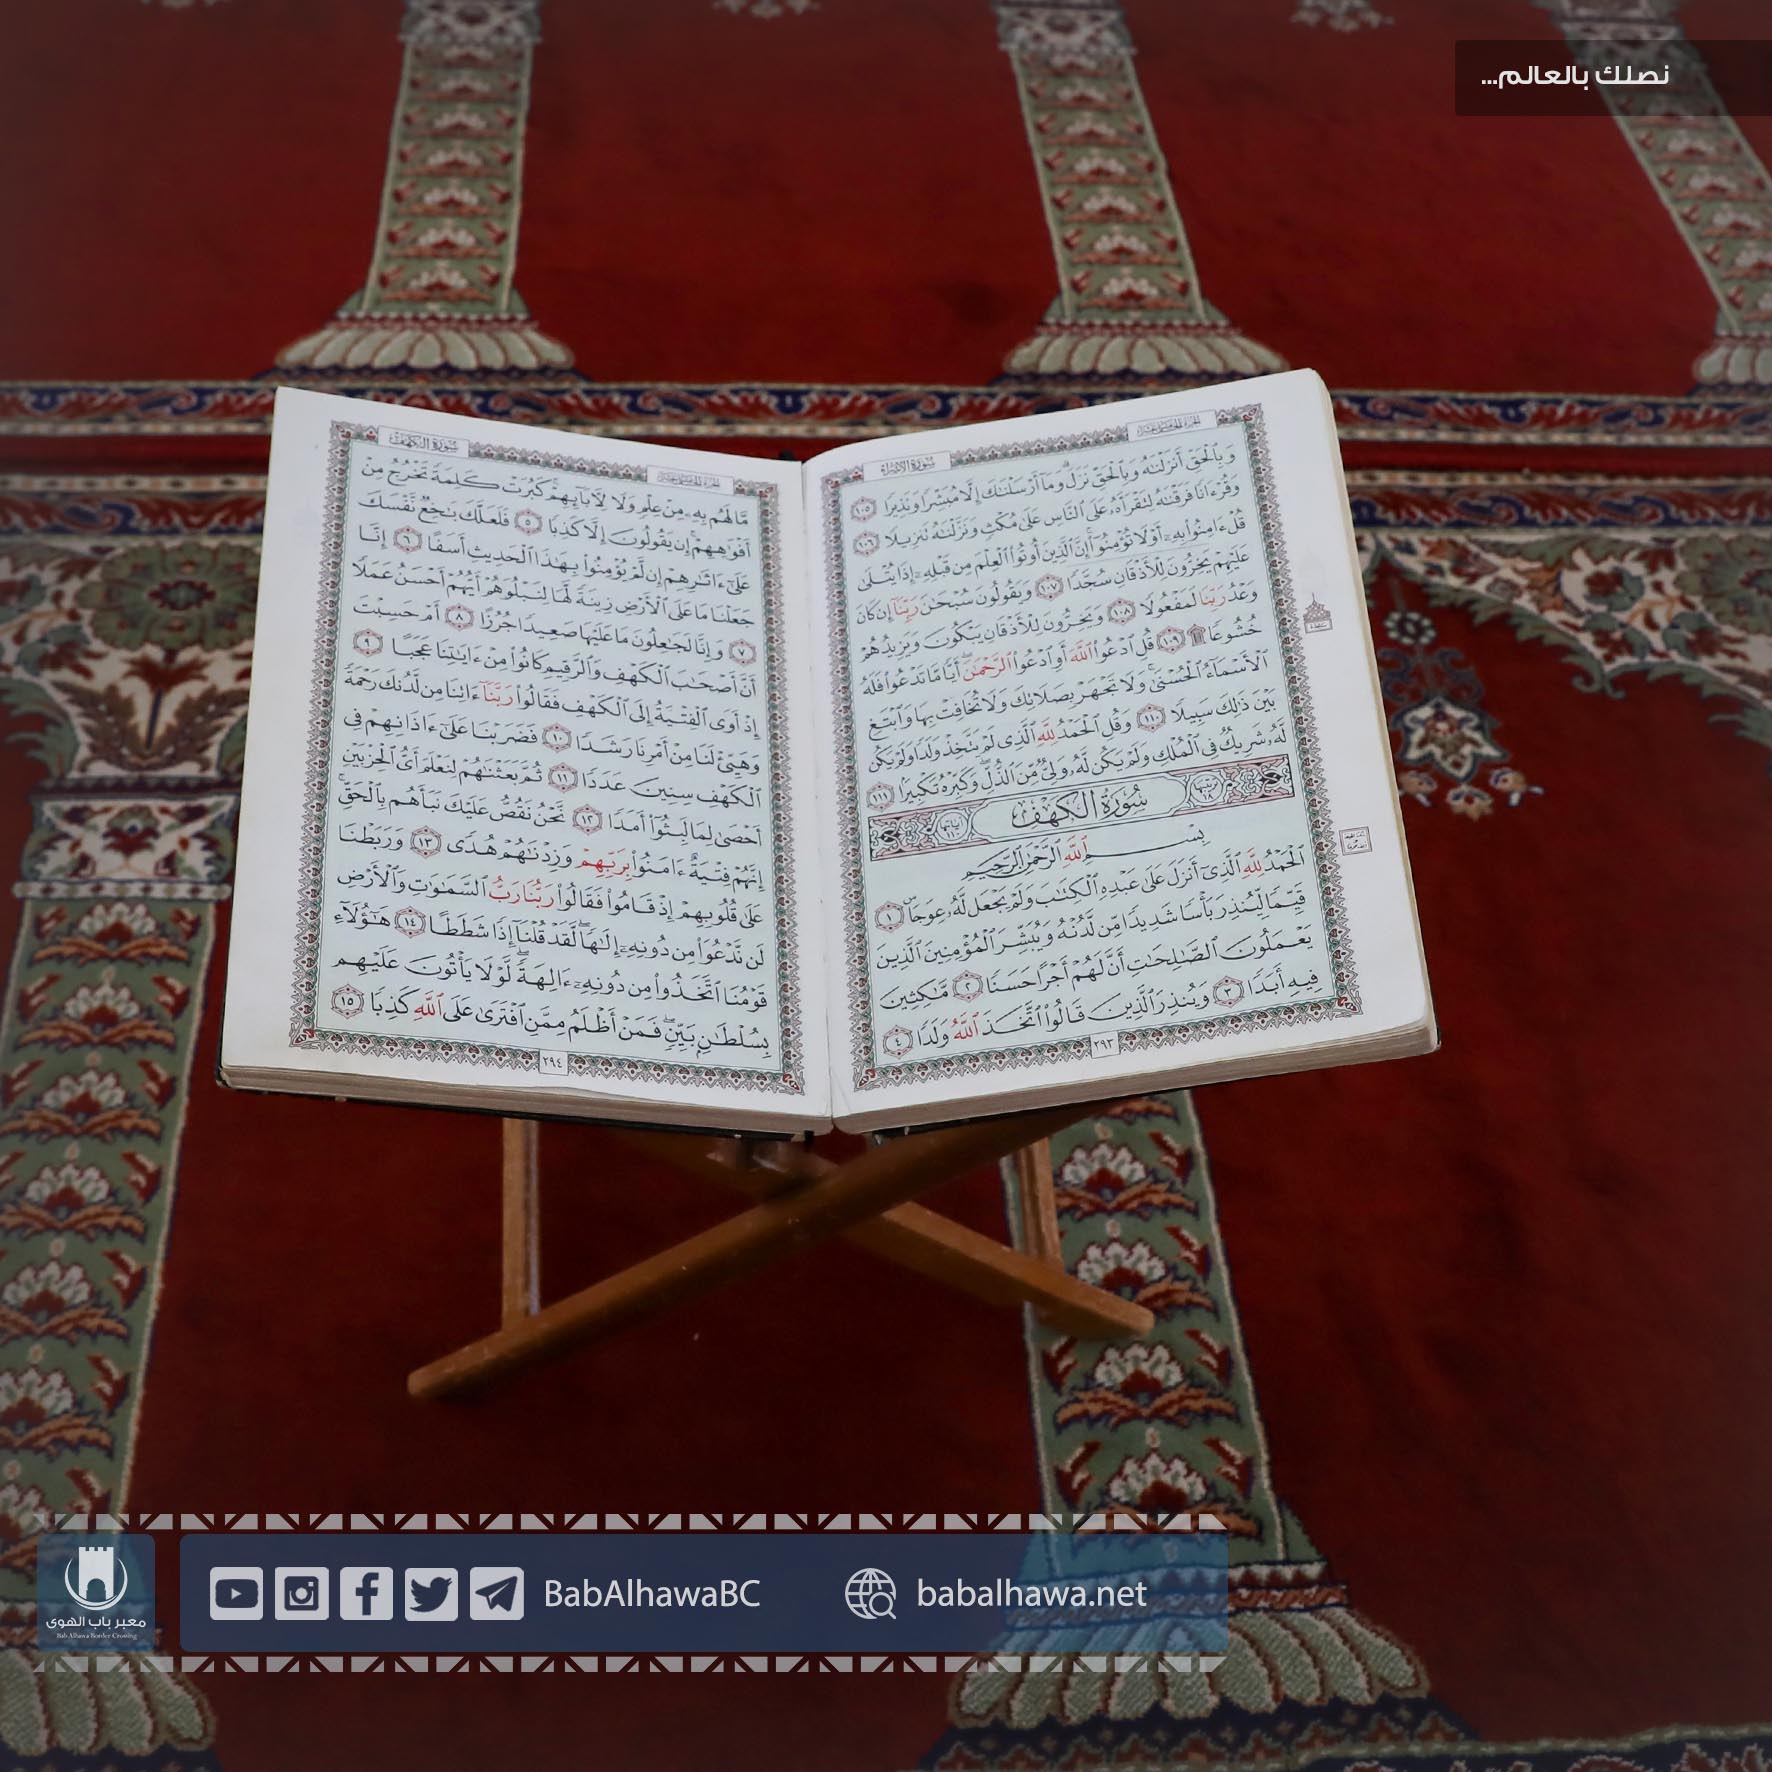 نصلك بالعالم...
سورة الإسراء
وَبِٱلْحَقِّ أَنزَلْنَٰهُ وَبِٱلْحَقِّ نَزَلَ وَمَآ أَرْسَلْنَٰكَ إِلَّا مُبَشِّرًا وَنَذِيرًا ١٠٥
وَقُرْءَانًا فَرَقْنَٰهُ لِتَقْرَأَهُۥ عَلَى ٱلنَّاسِ عَلَىٰ مُكْثٍ وَنَزَّلْنَٰهُ تَنزِيلًا ١٠٦
قُلْ ءَامِنُوا۟ بِهِۦٓ أَوْ لَا تُؤْمِنُوٓا۟ إِنَّ ٱلَّذِينَ أُوتُوا۟ ٱلْعِلْمَ مِن قَبْلِهِۦٓ إِذَا يُتْلَىٰ
عَلَيْهِمْ يَخِرُّونَ لِلْأَذْقَانِ سُجَّدًا ١٠٧ وَيَقُولُونَ سُبْحَٰنَ رَبِّنَآ إِن كَانَ
وَعْدُ رَبِّنَا لَمَفْعُولًا ١٠٨ وَيَخِرُّونَ لِلْأَذْقَانِ يَبْكُونَ وَيَزِيدُهُمْ
خُشُوعًا ۩ ١٠٩ قُلِ ٱدْعُوا۟ ٱللَّهَ أَوِ ٱدْعُوا۟ ٱلرَّحْمَٰنَ أَيًّا مَّا تَدْعُوا۟ فَلَهُ
ٱلْأَسْمَآءُ ٱلْحُسْنَىٰ وَلَا تَجْهَرْ بِصَلَاتِكَ وَلَا تُخَافِتْ بِهَا وَٱبْتَغِ
بَيْنَ ذَٰلِكَ سَبِيلًا ١١٠ وَقُلِ ٱلْحَمْدُ لِلَّهِ ٱلَّذِى لَمْ يَتَّخِذْ وَلَدًا وَلَمْ يَكُن
لَّهُۥ شَرِيكٌ فِى ٱلْمُلْكِ وَلَمْ يَكُن لَّهُۥ وَلِىٌّ مِّنَ ٱلذُّلِّ وَكَبِّرْهُ تَكْبِيرًا ١١١
ترتيبها ١٨ سُورَةُ الكَهْفِ آياتها ١١٠
بِسْمِ ٱللَّهِ ٱلرَّحْمَٰنِ ٱلرَّحِيمِ
ٱلْحَمْدُ لِلَّهِ ٱلَّذِىٓ أَنزَلَ عَلَىٰ عَبْدِهِ ٱلْكِتَٰبَ وَلَمْ يَجْعَل لَّهُۥ عِوَجَا ١
قَيِّمًا لِّيُنذِرَ بَأْسًا شَدِيدًا مِّن لَّدُنْهُ وَيُبَشِّرَ ٱلْمُؤْمِنِينَ ٱلَّذِينَ
يَعْمَلُونَ ٱلصَّٰلِحَٰتِ أَنَّ لَهُمْ أَجْرًا حَسَنًا ٢ مَّٰكِثِينَ
فِيهِ أَبَدًا ٣ وَيُنذِرَ ٱلَّذِينَ قَالُوا۟ ٱتَّخَذَ ٱللَّهُ وَلَدًا ٤
٢٩٣
سورة الكهف
مَّا لَهُم بِهِۦ مِنْ عِلْمٍ وَلَا لِءَابَآئِهِمْ كَبُرَتْ كَلِمَةً تَخْرُجُ مِنْ
أَفْوَٰهِهِمْ إِن يَقُولُونَ إِلَّا كَذِبًا ٥ فَلَعَلَّكَ بَٰخِعٌ نَّفْسَكَ
عَلَىٰٓ ءَاثَٰرِهِمْ إِن لَّمْ يُؤْمِنُوا۟ بِهَٰذَا ٱلْحَدِيثِ أَسَفًا ٦ إِنَّا
جَعَلْنَا مَا عَلَى ٱلْأَرْضِ زِينَةً لَّهَا لِنَبْلُوَهُمْ أَيُّهُمْ أَحْسَنُ عَمَلًا
٧ وَإِنَّا لَجَٰعِلُونَ مَا عَلَيْهَا صَعِيدًا جُرُزًا ٨ أَمْ حَسِبْتَ
أَنَّ أَصْحَٰبَ ٱلْكَهْفِ وَٱلرَّقِيمِ كَانُوا۟ مِنْ ءَايَٰتِنَا عَجَبًا ٩
إِذْ أَوَى ٱلْفِتْيَةُ إِلَى ٱلْكَهْفِ فَقَالُوا۟ رَبَّنَآ ءَاتِنَا مِن لَّدُنكَ رَحْمَةً
وَهَيِّئْ لَنَا مِنْ أَمْرِنَا رَشَدًا ١٠ فَضَرَبْنَا عَلَىٰٓ ءَاذَانِهِمْ فِى
ٱلْكَهْفِ سِنِينَ عَدَدًا ١١ ثُمَّ بَعَثْنَٰهُمْ لِنَعْلَمَ أَىُّ ٱلْحِزْبَيْنِ
أَحْصَىٰ لِمَا لَبِثُوٓا۟ أَمَدًا ١٢ نَّحْنُ نَقُصُّ عَلَيْكَ نَبَأَهُم بِٱلْحَقِّ
إِنَّهُمْ فِتْيَةٌ ءَامَنُوا۟ بِرَبِّهِمْ وَزِدْنَٰهُمْ هُدًى ١٣ وَرَبَطْنَا
عَلَىٰ قُلُوبِهِمْ إِذْ قَامُوا۟ فَقَالُوا۟ رَبُّنَا رَبُّ ٱلسَّمَٰوَٰتِ وَٱلْأَرْضِ
لَن نَّدْعُوَا۟ مِن دُونِهِۦٓ إِلَٰهًا لَّقَدْ قُلْنَآ إِذًا شَطَطًا ١٤ هَٰٓؤُلَآءِ
قَوْمُنَا ٱتَّخَذُوا۟ مِن دُونِهِۦٓ ءَالِهَةً لَّوْلَا يَأْتُونَ عَلَيْهِم
بِسُلْطَٰنٍۭ بَيِّنٍ فَمَنْ أَظْلَمُ مِمَّنِ ٱفْتَرَىٰ عَلَى ٱللَّهِ كَذِبًا ١٥
٢٩٤
معبر باب الهوى
Bab Alhawa Border Crossing
BabAlhawaBC
babalhawa.net